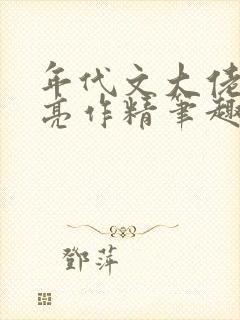 年代文大佬
亮作精笔趣
鄧萍